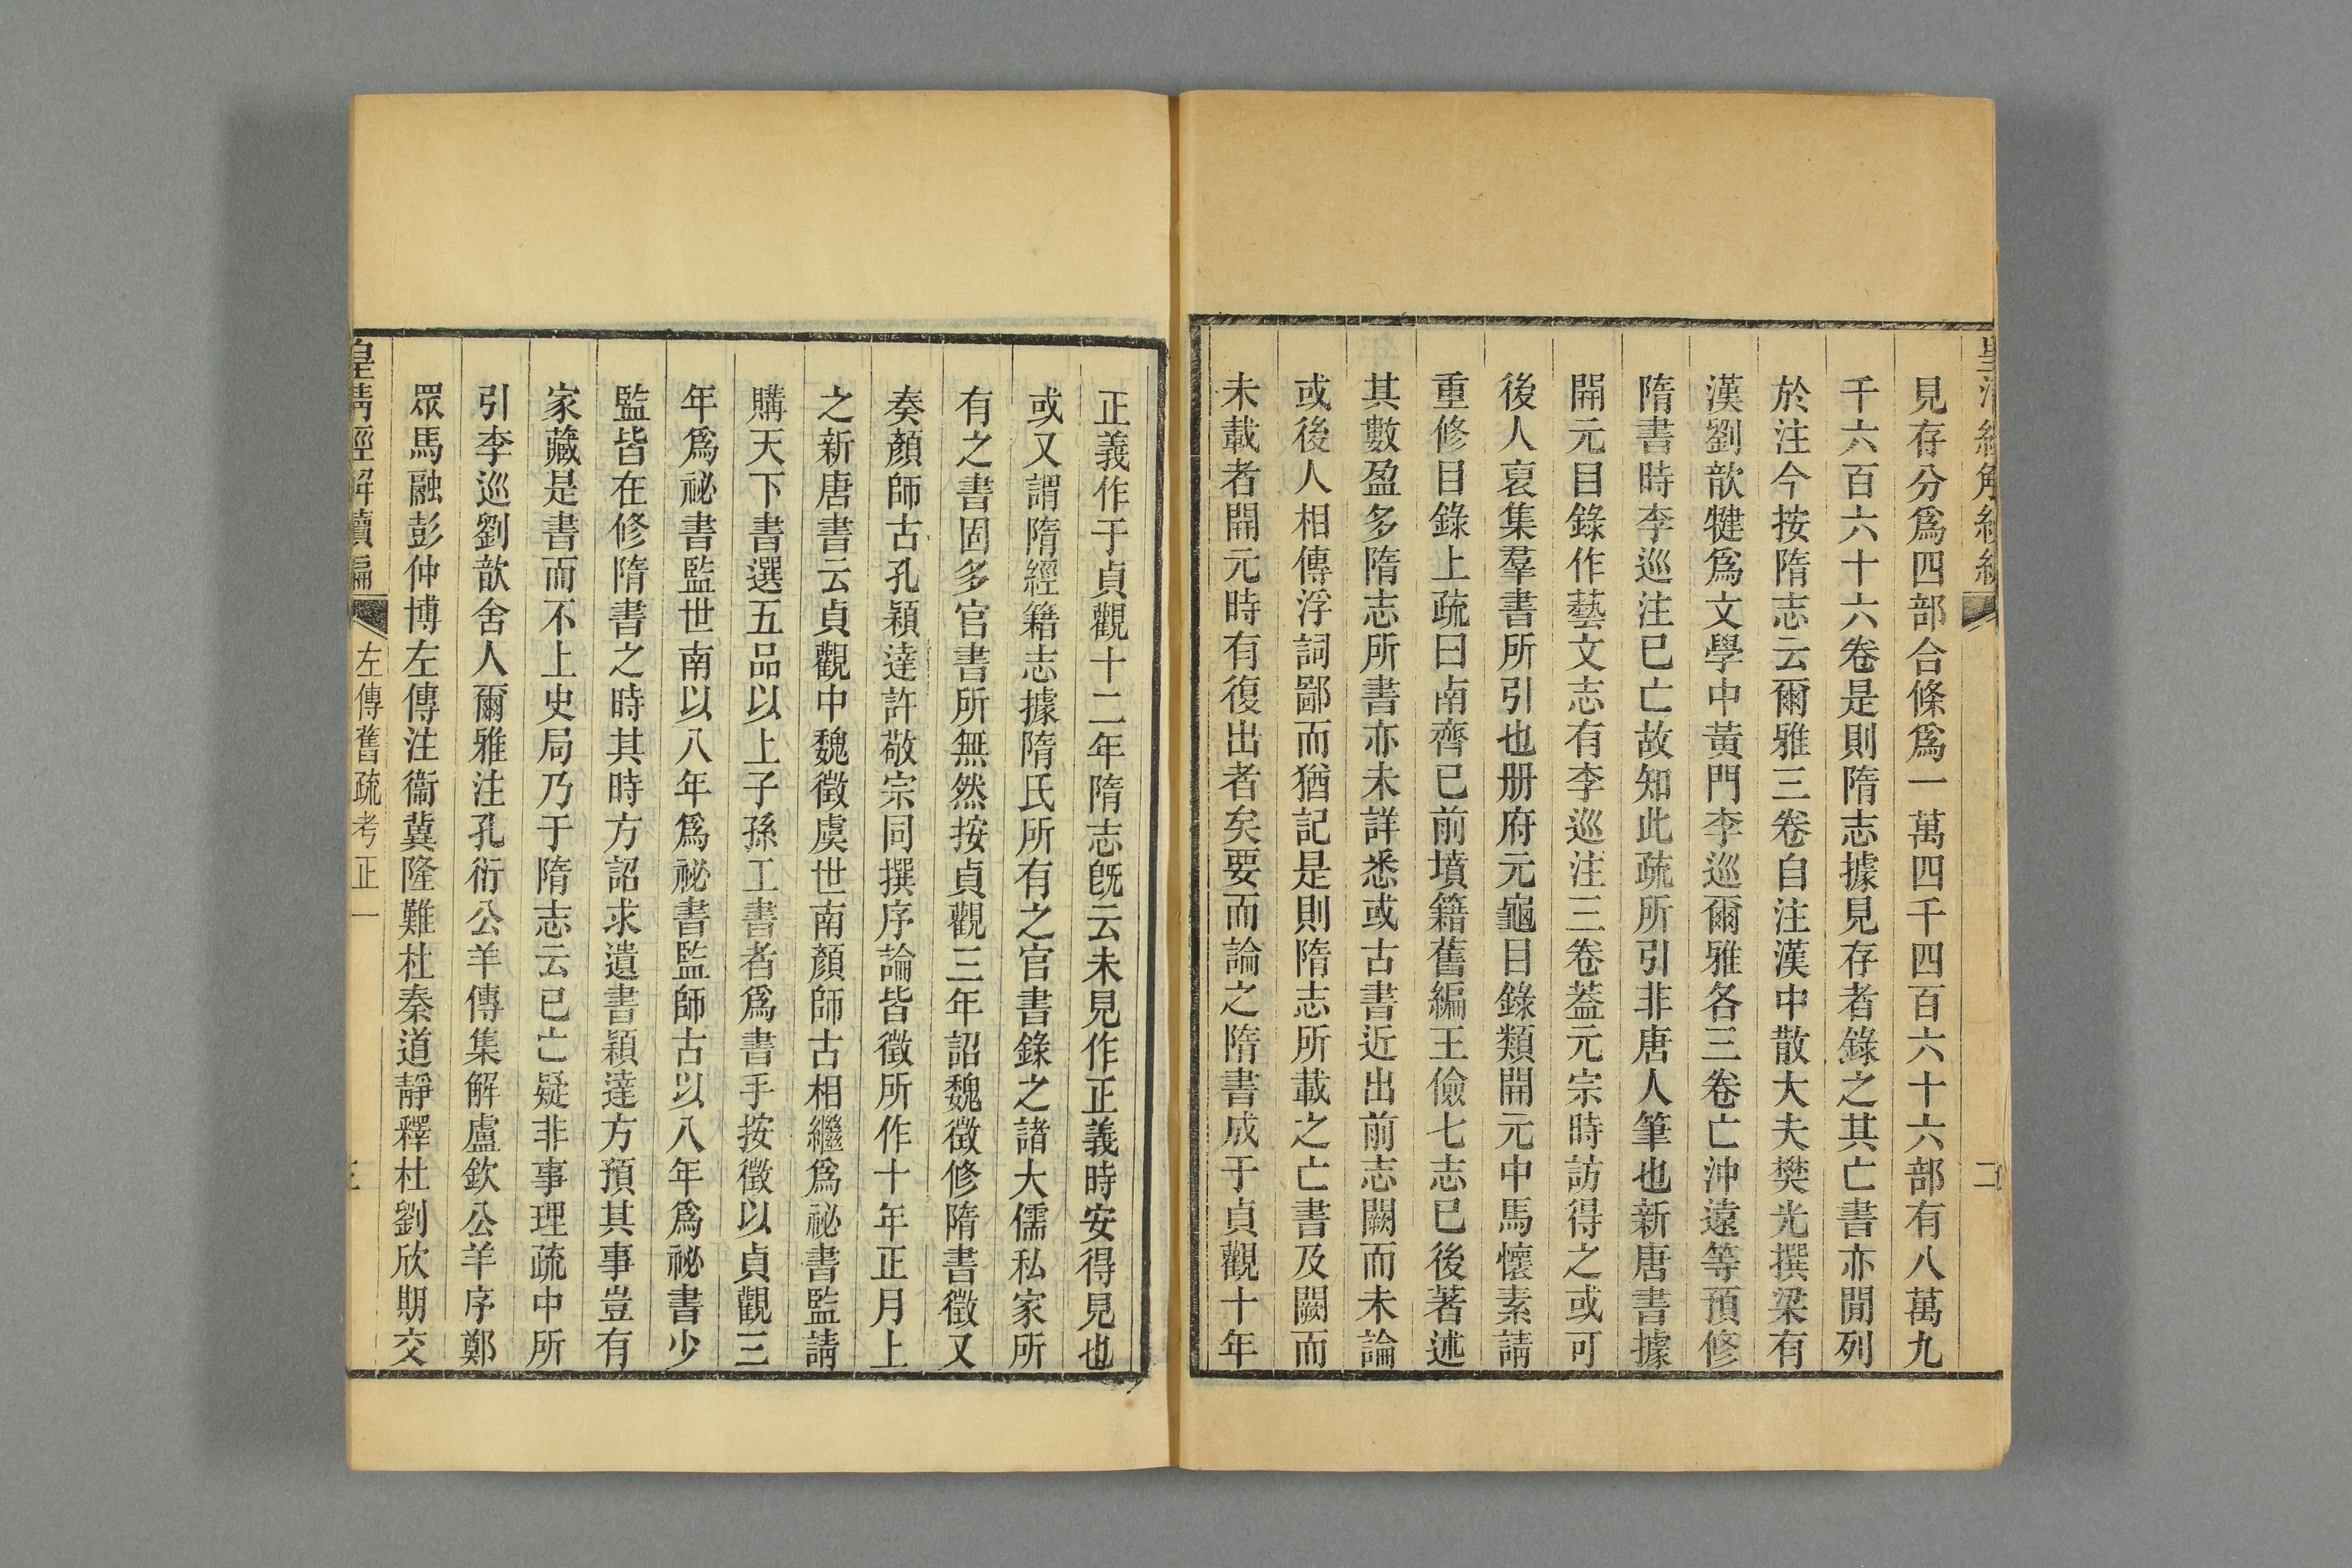 見存分爲四部合條爲一萬四千四百六十六部有八萬九
千六百六十六卷是則隋志據見存者錄之其亡書亦閒列
於注今按隋志云爾雅三卷自注漢中散大夫樊光撰梁有
漢劉歆犍爲文學中黃門李巡爾雅各三卷亡沖遠等預修
隋書時李巡注已亡故知此疏所引非唐人筆也新唐書據
開元目錄作藝文志有李巡注三卷葢元宗時訪得之或可
後人裒集羣書所引也册府元龜目錄類開元中馬懷素請
重修目錄上疏曰南齊已前墳籍舊編王儉七志已後著述
其數盈多隋志所書亦未詳悉或古書近出前志闕而未論
或後人相傳浮詞鄙而猶記是則隋志所載之亡書及闕而
未載者開元時有復出者矣要而論之隋書成于貞觀十年
正義作于貞觀十二年隋志旣云未見作正義時安得見也
或又謂隋經籍志據隋氏所有之官書錄之諸大儒私家所
有之書固多官書所無然按貞觀三年詔魏徵修隋書徵又
奏顏師古孔穎達許敬宗同撰序論皆徵所作十年正月上
之新唐書云貞觀中魏徵虞世南顏師古相繼爲祕書監請
購天下書選五品以上子孫工書者爲書手按徵以貞觀三
年爲祕書監世南以八年爲祕書監師古以八年爲祕書少
監皆在修隋書之時其時方詔求遺書穎達方預其事豈有
家藏是書而不上史局乃于隋志云已亡疑非事理疏中所
引李巡劉歆舍人爾雅注孔衍公羊傳集解盧欽公羊序鄭
眾馬融彭仲博左傳注衞冀隆難杜秦道靜釋杜劉欣期交
皇淸經解續編
左傳舊疏考正一